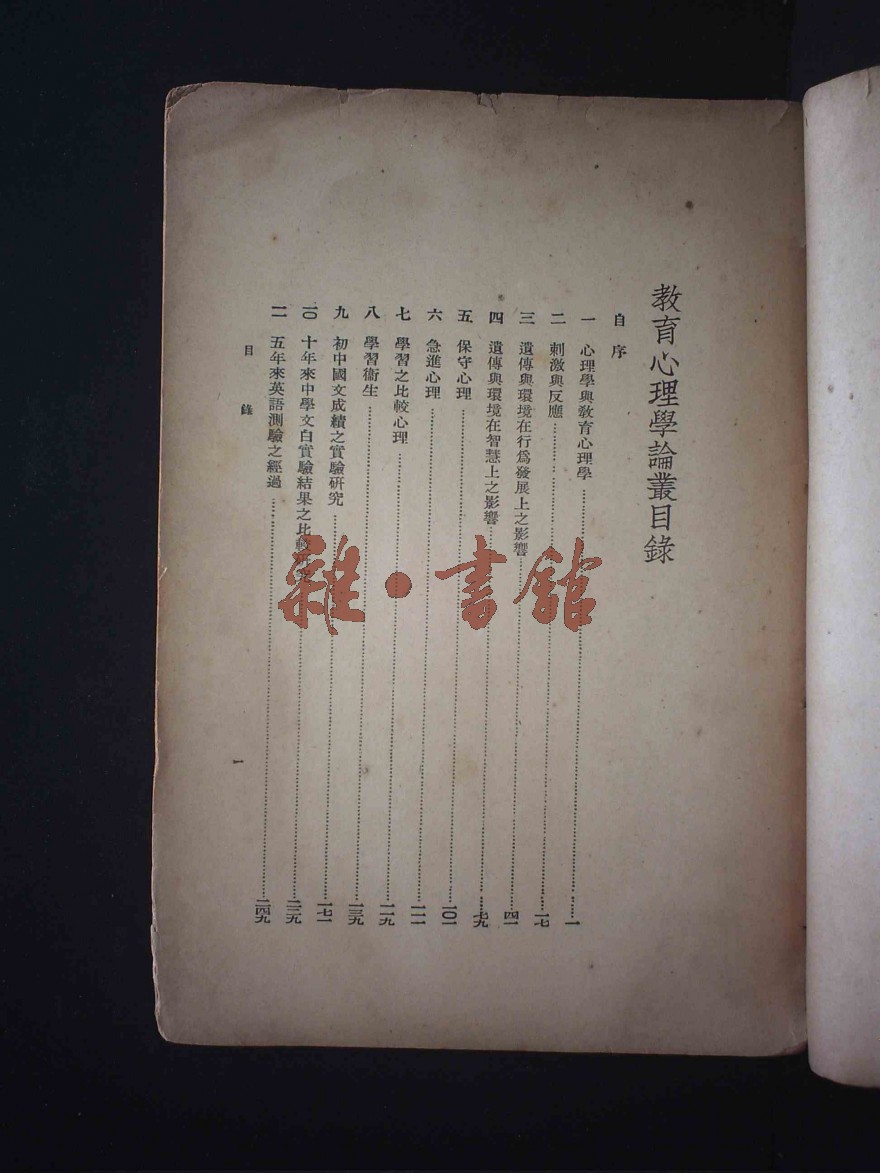 教育心理學論叢目錄
自序
一 心理學與教育心理學……一
二 刺激與反應……一七
三 遺傳與環境在行爲發展上之影響……四一
四 遺傳與環境在智慧上之影響……七九
五 保守心理……一〇一
六 急進心理……一一一
七 學習之比較心理……一一九
八 學習衞生……一三九
九 初中國文成績之實驗研究……一七一
一〇 十年來中學文白實驗結果之比較……二三九
一一 五年來英語測驗之經過……二四九
目錄
一
雜·書館